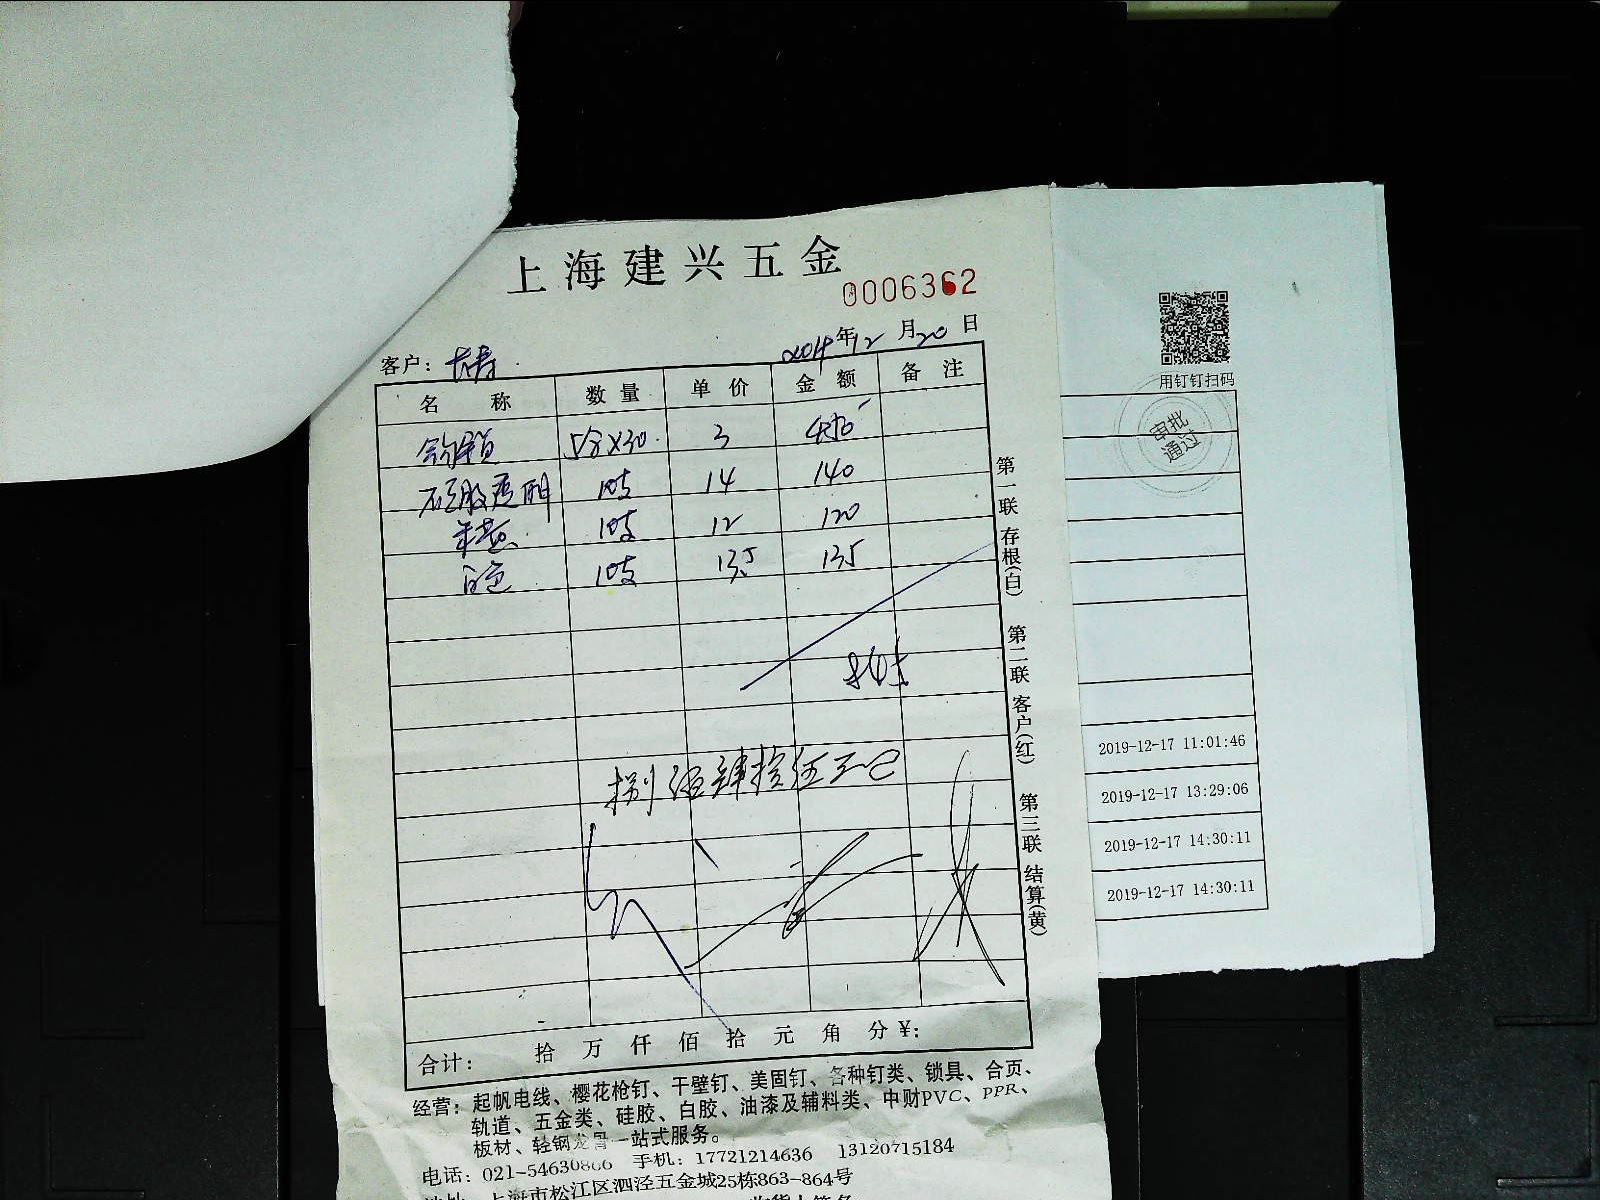 上海建兴五金
0006362
客户：
年12月20日
名称 数量 单价 金额 备注
3 450
硅胶透明 10支 14 140
米黄 10支 12 120
白色 10支 13.5 135
845
捌佰肆拾伍元
合计： 拾 万 仟 佰 拾 元 角 分 ¥：
经营：起帆电线、樱花枪钉、干壁钉、美固钉、各种钉类、锁具、合页、
轨道、五金类、硅胶、白胶、油漆及辅料类、中财PVC、PPR、
板材、轻钢龙骨一站式服务。
电话：021-54630866 手机：17721214636 13120715184
上海市松江区泗泾五金城25栋863-864号
第一联 存根(白) 第二联 客户(红) 第三联 结算(黄)
用钉钉扫码
审批
通过
2019-12-17 11:01:46
2019-12-17 13:29:06
2019-12-17 14:30:11
2019-12-17 14:30:11